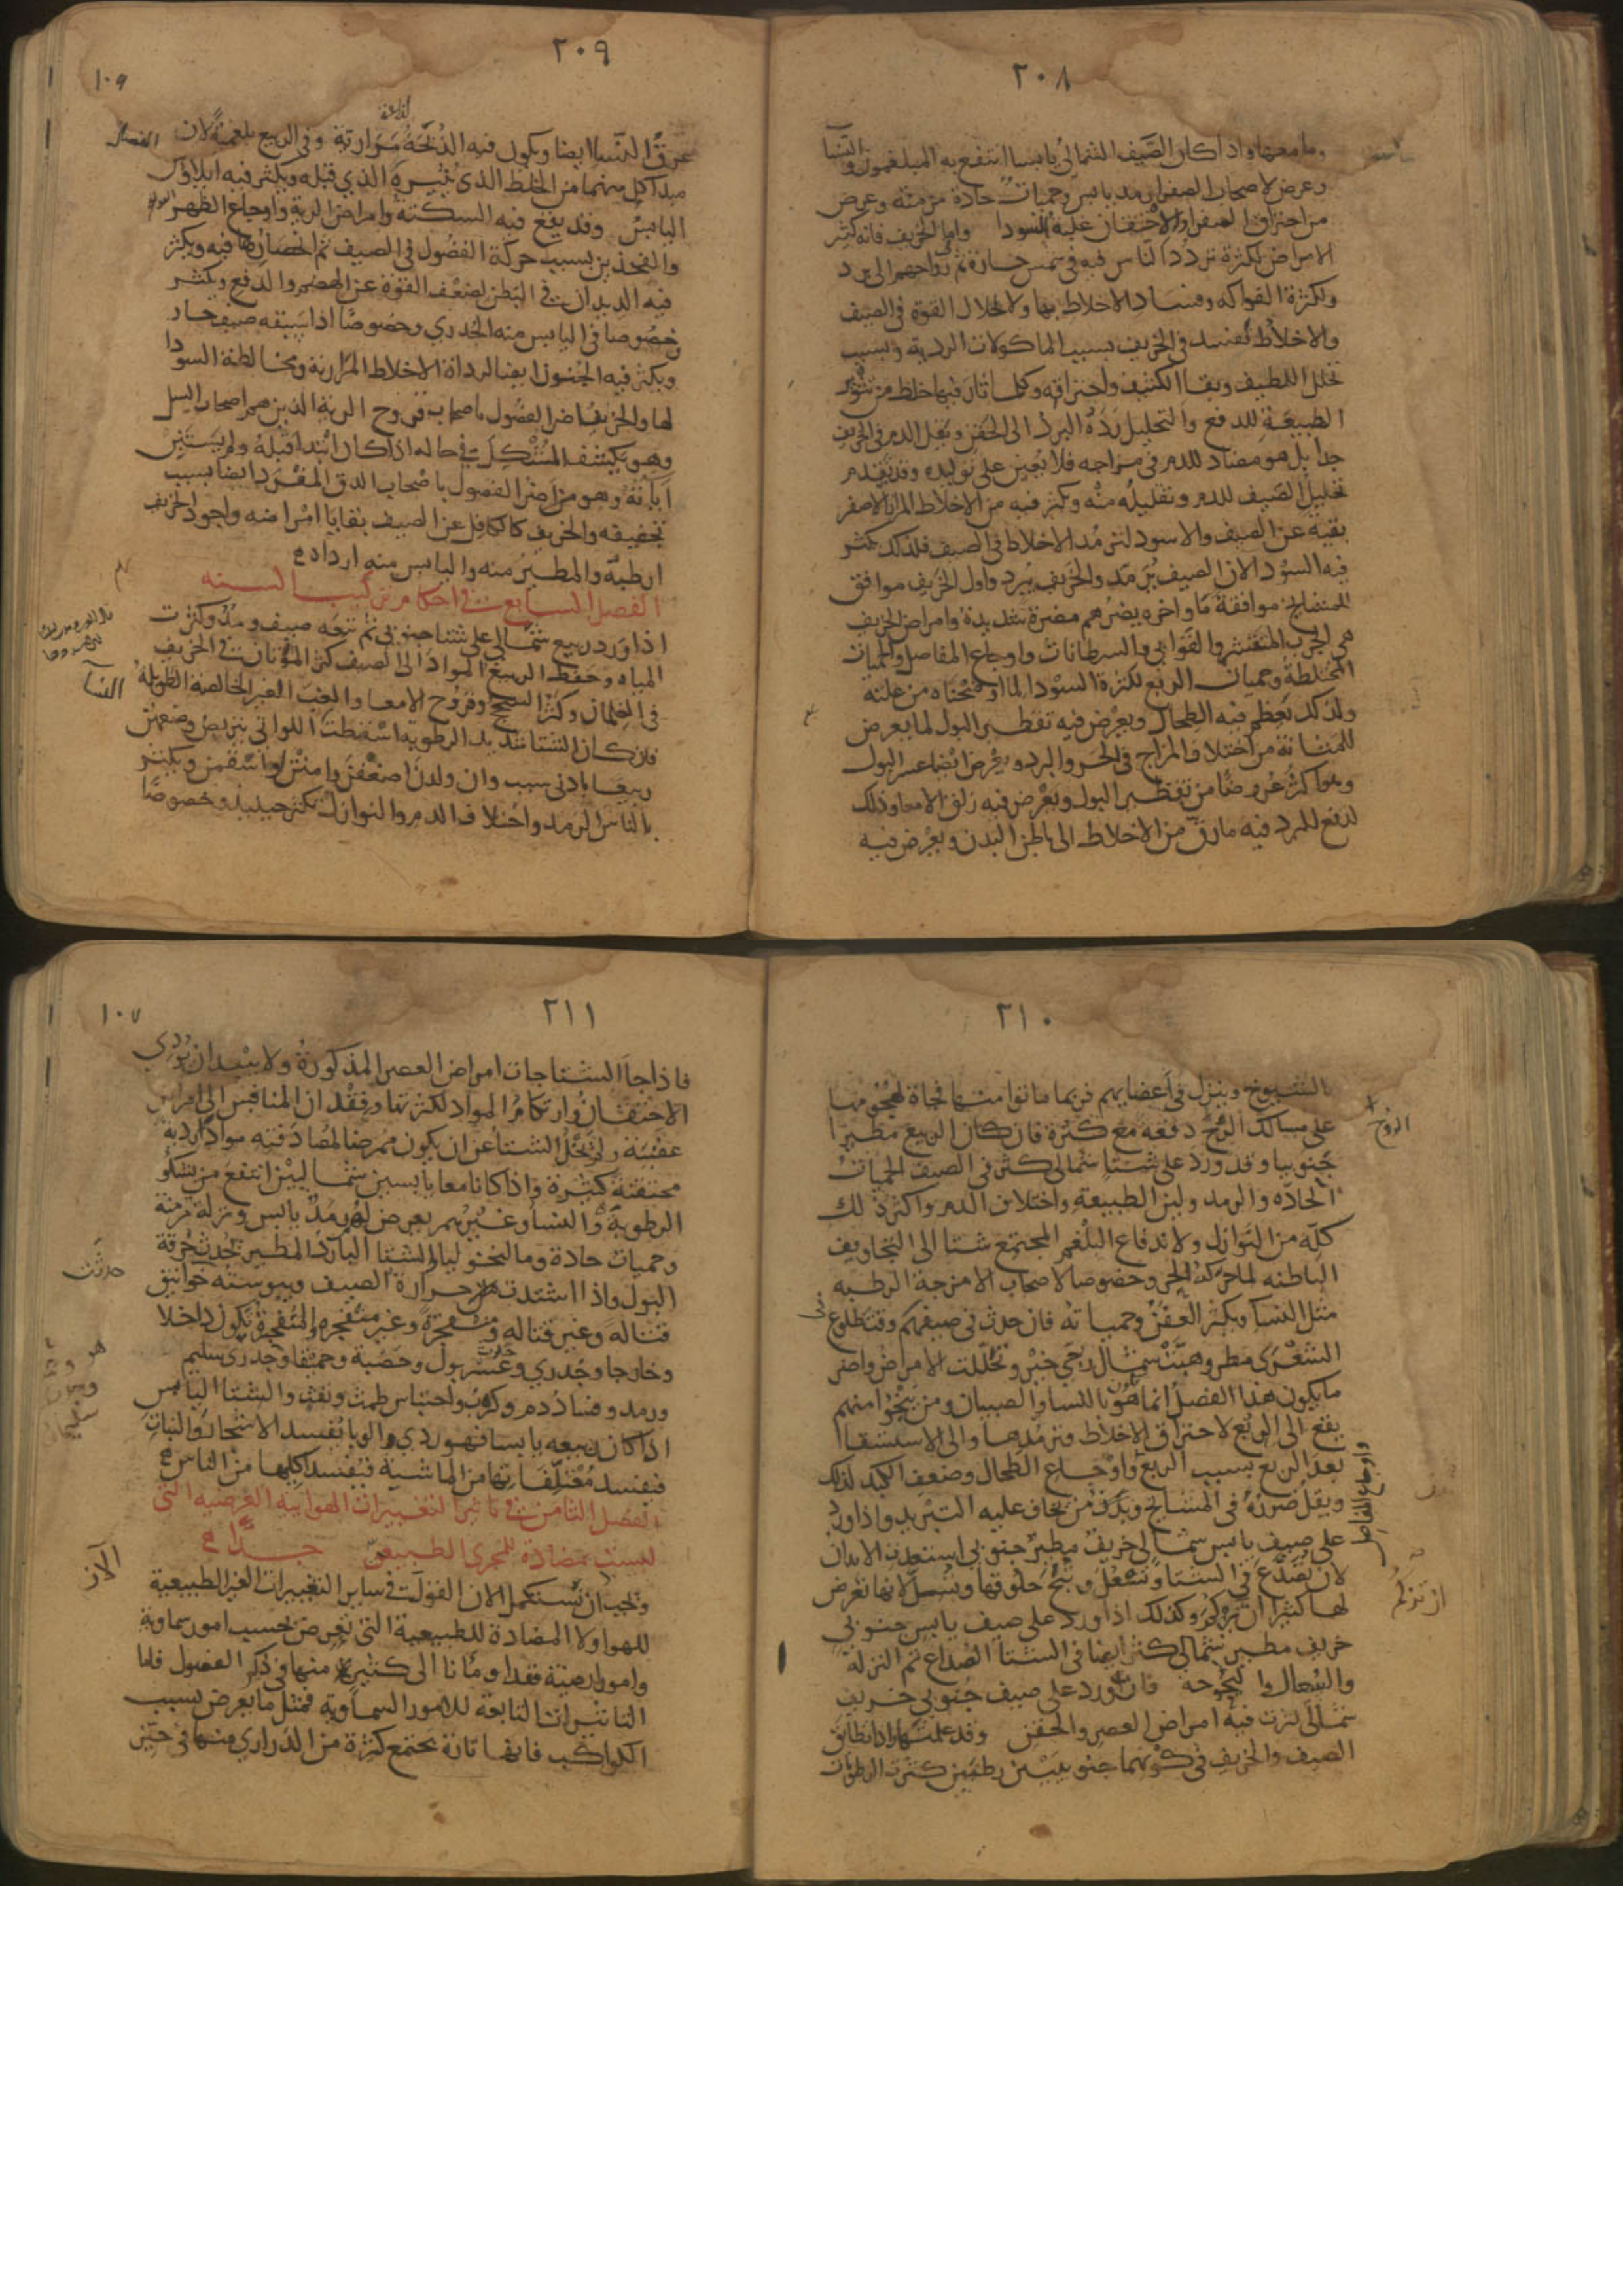 ٢٠٨
وما معها واذا كان الصيف الشمالي يابسا انتفع به المبلغمون والنسا
وعرض لاصحاب الصفرا رمد يابس وحميات حادة مزمنة وعرض
من احتراق الصفرا والاحتقان غلبة السودا واما الخريف فانه كثير
الامراض لكثرة تردد الناس فيه في شمس حارة ثم رواحهم الى برد
ولكثرة الفواكه وفساد الاخلاط بها ولانحلال القوة في الصيف
والاخلاط تفسد في الخريف بسبب الماكولات الردية وبسبب
تخلل اللطيف وبقا الكثيف واحتراقه وكلما ثار فيها خلط من تثور
الطبيعة للدفع والتحليل رده البرد الى الحقن ويقل الدم في الخريف
جدا بل هو مضاد للدم في مزاجه فلا يعين على توليده وقد تقدم
تحليل الصيف للدم وتقليله منه ويكثر فيه من الاخلاط المرار الاصفر
بقية عن الصيف والاسود لترمد الاخلاط في الصيف فلذلك تكثر
فيه السودا لان الصيف يرمد والخريف يبرد واول الخريف موافق
للمشايخ موافقة ما واخره يضرهم مضرة شديدة وامراض الخريف
هي الجرب المتقشر والقوابي والسرطانات واوجاع المفاصل والحميات
المختلطة وحميات الربع لكثرة السودا لما اوضحناه من علته
ولذلك يعظم فيه الطحال ويعرض فيه تقطير البول لما يعرض
للمثانة من اختلاف المزاج في الحر والبرد ويعرض ايضا عسر البول
وهو اكثر عروضا من تقطير البول ويعرض فيه زلق الامعا وذلك
لدفع البرد فيه ما رق من الاخلاط الى باطن البدن ويعرض فيه
٢٠٩
١٠٩
عرق النسا ايضا ويكون فيه الذبحة مرارية وفي الربيع بلغمية لان
مبدا كل منهما من الخلط الذي يثيره الذي قبله ويكثر فيه ايلاوس
اليابس وقد يقع فيه السكتة وامراض الرية واوجاع الظهر
والفخذين بسبب حركة الفضول في الصيف ثم انحصارها فيه ويكثر
فيه الديدان في البطن لضعف القوة عن الهضم والدفع ويكثر
خصوصا في اليابس منه الجدري وخصوصا اذا سبقه صيف حار
ويكثر فيه الجنون ايضا لرداة الاخلاط المرارية ومخالطة السودا
لها والخريف اضر الفصول باصحاب قروح الرية الذين هم اصحاب السل
وهو يكشف المشكل في حاله اذا كان ابتدا قبله ولم يستبن
اياته وهو من اضر الفصول باصحاب الدق المفرد ايضا بسبب
تجفيفه والخريف كالكافل عن الصيف بقايا امراضه واجود الخريف
ارطبه والمطير منه واليابس منه اردا
الفصل السابع في احكام تركيب السنه
اذا ورد ربيع شمالي على شتا جنوبي ثم تبعه صيف ومد وكثرت
المياه وحفظ الربيع المواد الى الصيف كثر الموتان في الخريف
في الغلمان وكثر السحج وقروح الامعا والغب الغير الخالصة الطويلة
فان كان الشتا شديد الرطوبة اسقطت اللواتي يتربصن وضعهن
ربيعا بادنى سبب وان ولدن اضعفن وامتن او اسقمن ويكثر
بالناس الرمد واختلاف الدم والنوازل تكثر حينئذ وخصوصا
النسا
٢١٠
بالشيوخ وينزل في اعصابهم فربما ماتوا منها فجاة لهجومها
على مسالك الروح دفعه مع كثرة فان كان الربيع مطيرا
جنوبيا وقد ورد على شتا شمالي كثر في الصيف الحميات
الحاده والرمد ولين الطبيعة واختلاف الدم واكثر ذلك
كله من النوازل ولاندفاع البلغم المجتمع شتا الى التجاويف
الباطنه لما حركه الحر وخصوصا لاصحاب الامزجة الرطبه
مثل النسا ويكثر العفن وحمياته فان حدث في صيفهم وقت طلوع
الشعرى مطر وهبت شمال رجي خير وتحللت الامراض واضر
ما يكون هذا الفصل انما هو بالنسا والصبيان ومن ينجو منهم
يقع الى الربع لاحتراق الاخلاط وترمدها والى الاستسقا
بعد الربع بسبب الربع واوجاع الطحال وضعف الكبد لذلك
ويقل ضرره في المشايخ وبدن من يخاف عليه التبريد واذا ورد
على صيف يابس شمالي خريف مطير جنوبي استعدت الابدان
لان تصدع في الشتا وتسعل وتبح حلوقها وتسل لانها تعرض
لها كثيرا ان تزكم وكذلك اذا ورد على صيف يابس جنوبي
خريف مطير شمالي كثر ايضا في الشتا الصداع ثم النزلة
والسعال والبحوحه فان ورد على صيف جنوبي خريف
شمالي كثرت فيه امراض العصر والحقن وقد علمتها واذا تطابق
الصيف والخريف في كونهما جنوبيين رطبين كثرت الرطوبات
الروح
واوجاع المفاصل
ان تزكم
٢١١
١٠٧
فاذا جا الشتا جات امراض العصر المذكورة ولا يبعد ان يودي
الاحتقان وارتكام المواد لكثرتها وفقدان المنافس الى امراض
عفنية ولم يخل الشتا عن ان يكون ممرضا لمصادفته موادا ردية
محتقنة كثيرة واذا كانا معا يابسين شماليين انتفع من يشكو
الرطوبة والنسا وغيرهم يعرض لهم رمد يابس ونزلة مزمنة
وحميات حادة ومالنخوليا والشتا البارد المطير تحدث حرقة
البول واذا اشتدت حرارة الصيف ويبوسته خوانيق
قتالة وغير قتالة ومتفجرة وغير متفجره والمتفجرة تكون داخلا
وخارجا وجدري وعسر بول وحصبة وحميقا وجدري سليم
ورمد وفساد دم وكرب واحتباس طمث ونفث والشتا اليابس
اذا كان ربيعه يابسا فهو ردي والوبا يفسد الاشجار والنبات
فيفسد معتلفاتها من الماشية فيفسد اكلها من الناس
الفصل الثامن في تاثير التغييرات الهوايية الغريبه التي
ليست بمضادة للمجرى الطبيعي جدا
ويجب ان نستكمل الان القول في ساير التغييرات الغير الطبيعية
للهوا ولا المضادة للطبيعية التي تعرض بحسب امور سماوية
وامور ارضية فقد اومانا الى كثير منها في ذكر الفصول فاما
التاثيرات التابعة للامور السماوية فمثل ما يعرض بسبب
الكواكب فانها تارة يجتمع كثرة من الدراري منها في حيز
حدثت
الان